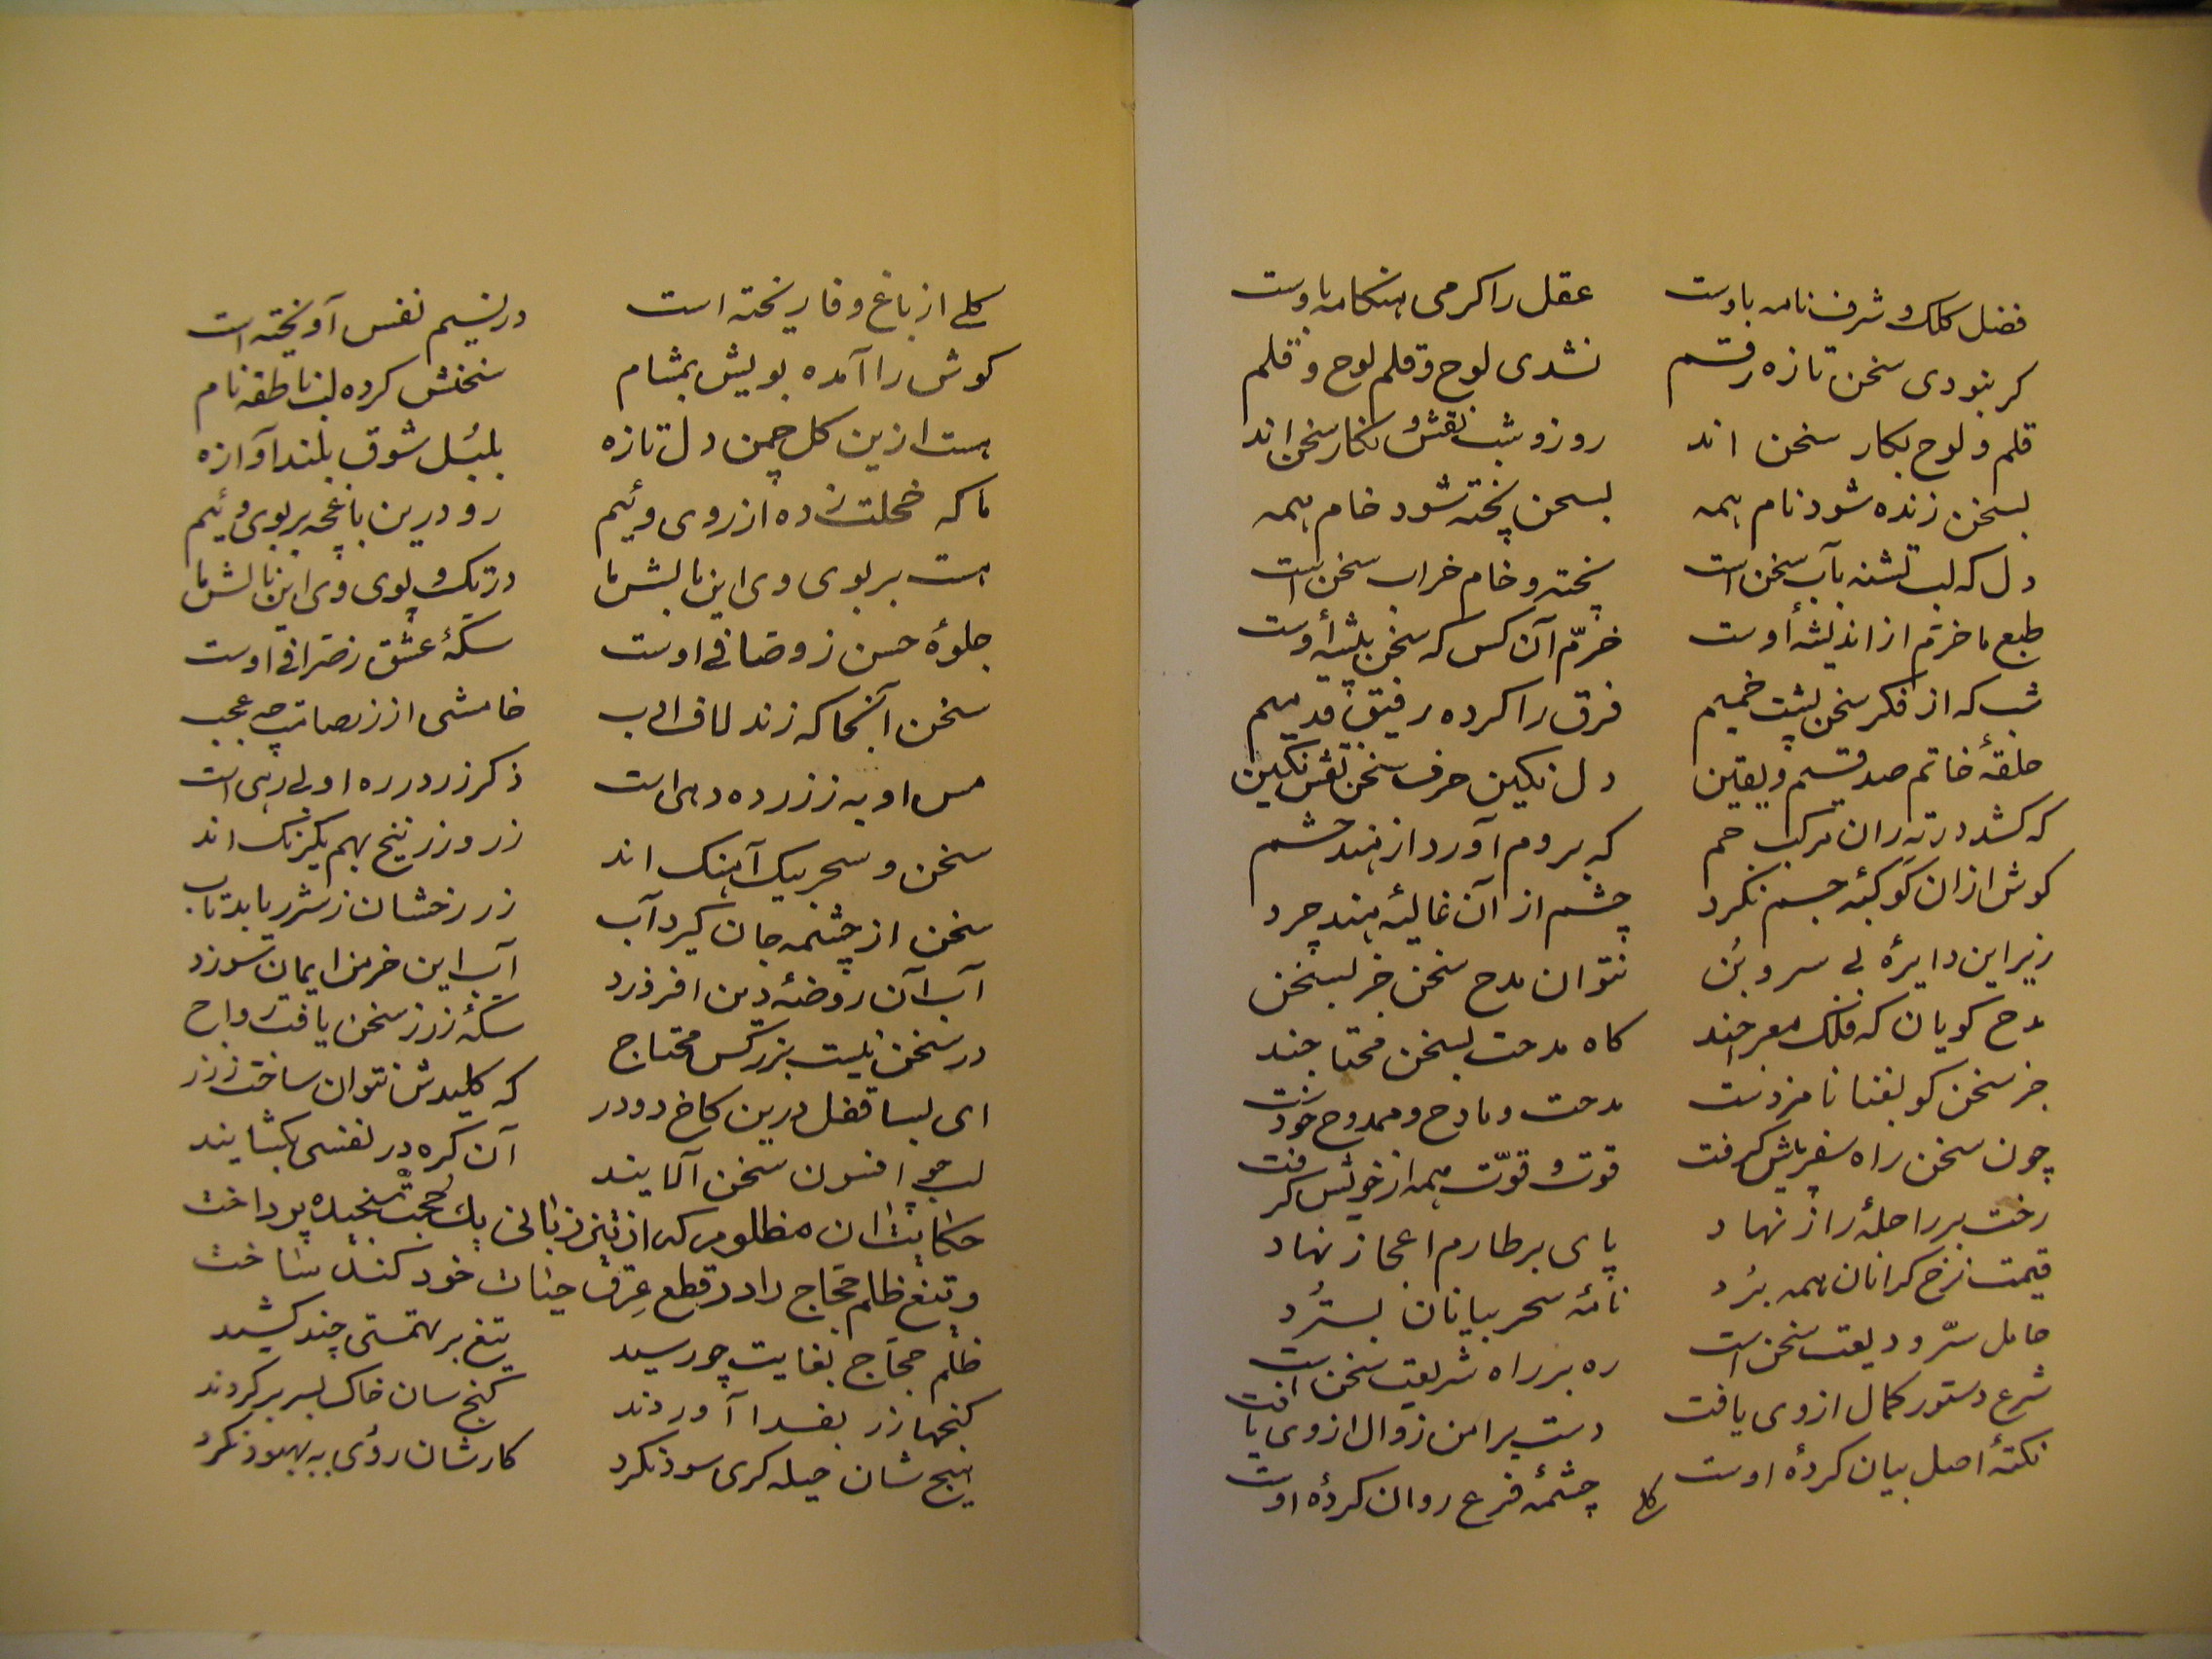 فضل کلک و شرف نامه باوست عقل را کرمی هنکامه باوست
کر نبودی سخن تازه رقم نشدی لوح و قلم لوح و قلم
قلم و لوح بکار سخن اند روز و شب نقش و نکار سخن اند
بسخن زنده شود نام همه بسخن پخته شود خام همه
دل که لب تشنه بآب سخن است پخته و خام خراب سخن است
طبع ما خرّم از اندیشهٔ اوست خرّم آن کس که سخن پیشهٔ اوست
شب که از فکر سخن پشت خمیم فرق را کرده رفیق قدمیم
حلقهٔ خاتم صدقیم و یقین دل نکین حرف سخن نقش نکین
که کشد در ته ران مرکب جم که بروم آورد از هند حشم
کوش ازان کوکبه جسم نکرد چشم از آن غالیهٔ هند چرد
زیر این دایرهٔ بی سر و بُن نتوان مدح سخن جز بسخن
مدح کویان که فلک معراجند کاه مدحت بسخن محتاجند
جز سخن کو بفنا نامزدست مدحت و مادح و ممدوح خودست
چون سخن راه سفر پیش کرفت قوت و قوّت همه از خویش کرفت
رخت بر راحلهٔ راز نهاد پای بر طارم اعجاز نهاد
قیمت نرخ کرانان همه بُرد نامهٔ سحر بیانان بسترُد
حامل سرّ و دیعت سخن است ره بر راه شریعت سخن است
شرع دستور کمال از وی یافت دست بر امن زوال از وی یافت
نکتهٔ اصل بیان کردهٔ اوست چشمهٔ فرع روان کردهٔ اوست
کلے
کلے از باغ وفا ریخته است در نسیم نفس آویخته است
کوش را آمده بویش بمشام سخنش کرده لب ناطقه نام
هست ازین کل چمن دل تازه بلبُل شوق بلند آوازه
ما که خجلت زده از روی وئیم رو درین باغچه بر بوی وئیم
هست بر بوی وی این بالش ما در تک و پوی وی این نالش ما
جلوهٔ حسن ز وصّافی اوست سکّهٔ عشق ز صرّافی اوست
سخن آنجا که زند لاف ادب خامشی از زر صامت چه عجب
مس او به ز زر ده دهی است ذکر زر در ره او بی رهی است
سخن و سحر بیک آهنک اند زر و زرنیخ بهم یکرنک اند
سخن از چشمه جان کیرد آب زر رخشان ز شرر یابد تاب
آب آن روضهٔ دین افروزد آب این خرمن ایمان سوزد
در سخن نیست بزر کس محتاج سکّهٔ زر ز سخن یافت رواج
ای بسا قفل درین کاخ دو در که کلیدش نتوان ساخت ز زر
لب چو افسون سخن آلایند آن کره در نفسی بکشایند
حکایت ان مظلوم که از تیز زبانی یک حجت سنجیده پرداخت
و تیغ ظلم حجّاج را در قطع عِرق حیات خود کند ساخت
ظلم حجّاج بغایت چو رسید تیغ بر بهتمتی چند کشید
کنجها زر بفدا آوردند کنج سان خاک بسر بر کردند
هیچ شان حیله کری سود نکرد کارشان روئی به بهبود نکرد